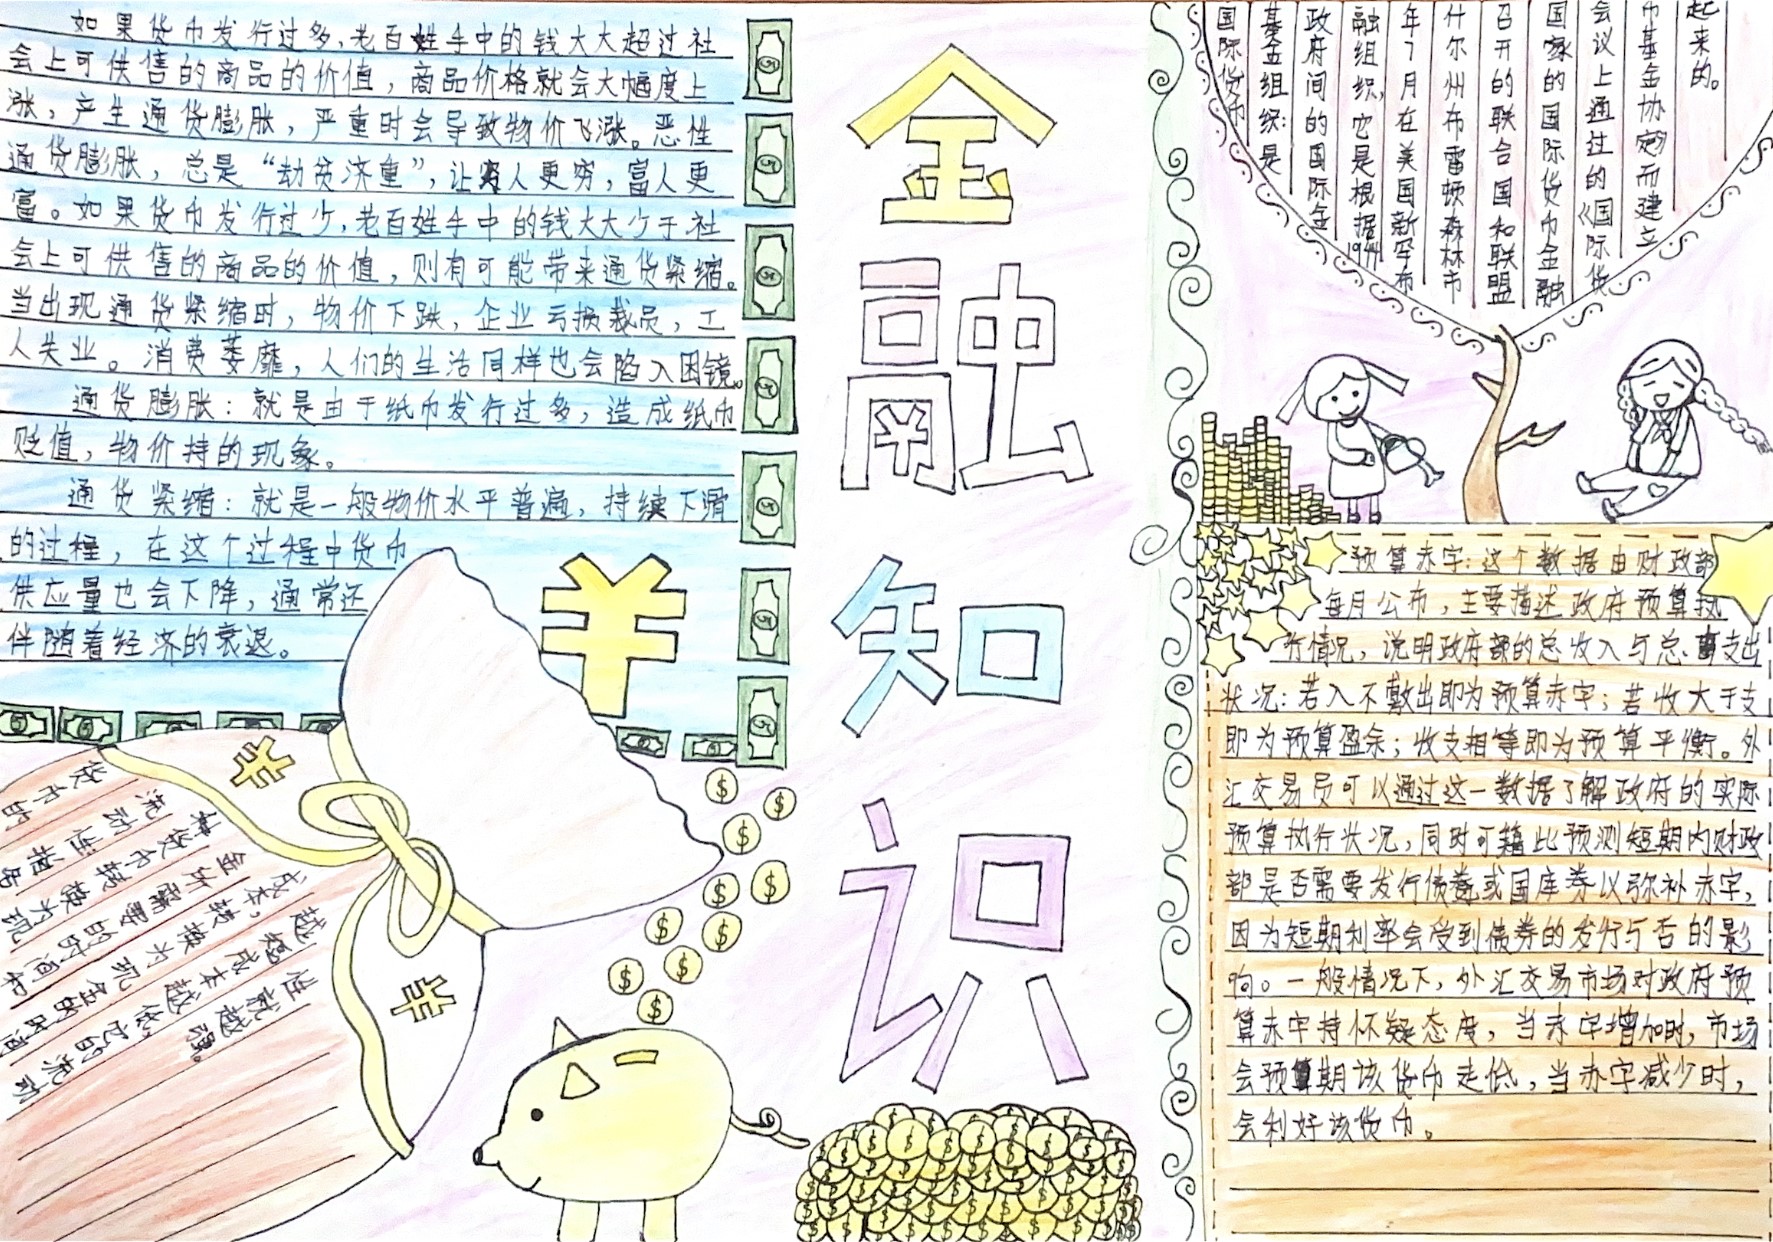 如果货币发行过多，老百姓手中的钱大大超过社
会上可供售的商品的价值，商品价格就会大幅度上
涨，产生通货膨胀，严重时会导致物价飞涨。恶性
通货膨胀，总是“劫贫济重”，让穷人更穷，富人更
富。如果货币发行过少，老百姓手中的钱大大少于社
会上可供售的商品的价值，则有可能带来通货紧缩。
当出现通货紧缩时，物价下跌，企业亏损裁员，工
人失业。消费萎靡，人们的生活同样也会陷入困镜。
通货膨胀：就是由于纸币发行过多，造成纸币
贬值，物价持的现象。
通货紧缩：就是一般物价水平普遍，持续下滑
的过程，在这个过程中货币
供应量也会下降，通常还
伴随着经济的衰退。
¥
¥
¥
货币的
流动性指将
种货币转换为现
金所需要的时间和
成本，转换为现金的时间
越短成本越低，它的流动
性就越强。
金
融
知
识
国际货币
基金组织：是
政府间的国际金
融组织，它是根据1944
年7月在美国新罕布
什尔州布雷顿森林市
召开的联合国和联盟
国家的国际货币金融
会议上通过的《国际货
币基金协定》而建立
起来的。
预算赤字：这个数据由财政部
每月公布，主要描述政府预算执
行情况，说明政府部的总收入与总支出
状况：若入不敷出即为预算赤字；若收大于支
即为预算盈余；收支相等即为预算平衡。外
汇交易员可以通过这一数据了解政府的实际
预算执行状况，同时可藉此预测短期内财政
部是否需要发行债券或国库券以弥补赤字，
因为短期利率会受到债券的发行与否的影
响。一般情况下，外汇交易市场对政府预
算赤字持怀疑态度，当赤字增加时，市场
会预算期该货币走低，当赤字减少时，
会利好该货币。